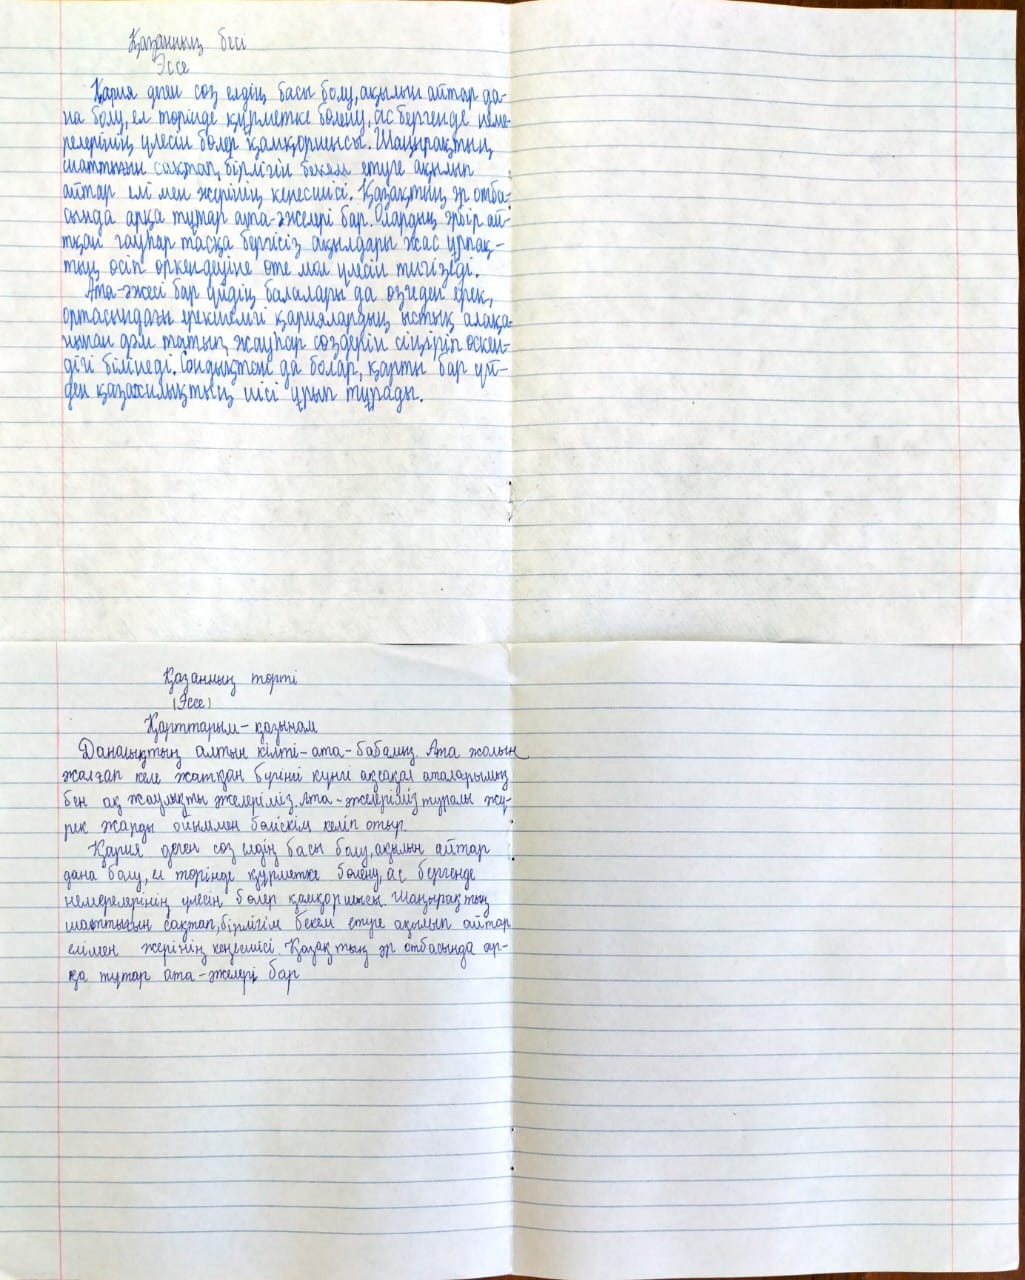 Қазанның бесі
Эссе
Қария деген сөз елдің басы болу, ақылын айтар да-
на болу, ел төрінде құрметке бөлену, ас бергенде неме-
релерінің үлесін бөлер қамқоршысы. Шаңырақтың
шаттығын сақтап, бірлігін бекем етуге ақылын
айтар елі мен жерінің кеңесшісі. Қазақтың әр отба-
сында арқа тұтар ата-әжелері бар. Олардың әрбір ай-
тқан гауһар тасқа бергісіз ақылдары жас ұрпақ-
тың өсіп өркендеуіне өте мол үлесін тигізеді.
Ата-әжесі бар үйдің балалары да өзгеден ерек,
ортасындағы ерекшелігі қариялардың ыстық алақа-
нынан дәм татып, жауһар сөздерін сіңіріп өскен-
дігі білінеді. Сондықтан да болар, қарты бар үй-
ден қазақылықтың иісі ұрып тұрады.
Қазанның төрті
(Эссе)
Қарттарым - қазынам
Даналықтың алтын кілті - ата-бабамыз. Ата жолын
жалғап келе жатқан бүгінгі күнгі ақсақал аталарымыз
бен ақ жаулықты әжелеріміз. Ата-әжелеріміз туралы жү-
рек жарды ойыммен бөліскім келіп отыр.
Қария деген сөз елдің басы болу, ақылын айтар
дана болу, ел төрінде құрметке бөлену, ас бергенде
немерелерінің үлесін бөлер қамқоршысы. Шаңырақтың
шаттығын сақтап, бірлігім бекем етуге ақылып айтар
елімен жерінің кеңесшісі. Қазақтың әр отбасында ар-
қа тұтар ата-әжелері бар